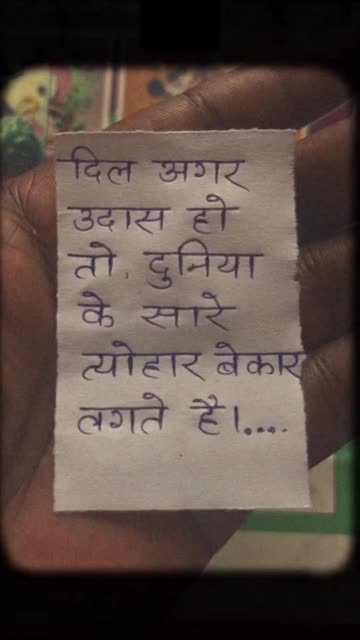 दिल अगर
उदास हो
तो, दुनिया
के सारे
त्योहार बेकार
लगते है।....